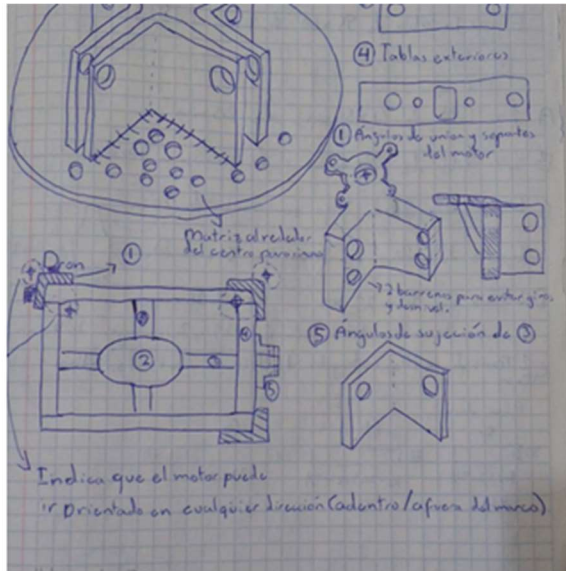 ④ Tablas exteriores
① Angulos de union y soportes
del motor
Matriz alrededor
del centro para
Dron ①
→ 2 barrenos para evitar giros
y desnivel.
③
④
②
③
⑤
⑤ Ángulos de sujeción de ③
Indica que el motor puede
ir Orientado en cualquier dirección (adentro/afuera del marco)